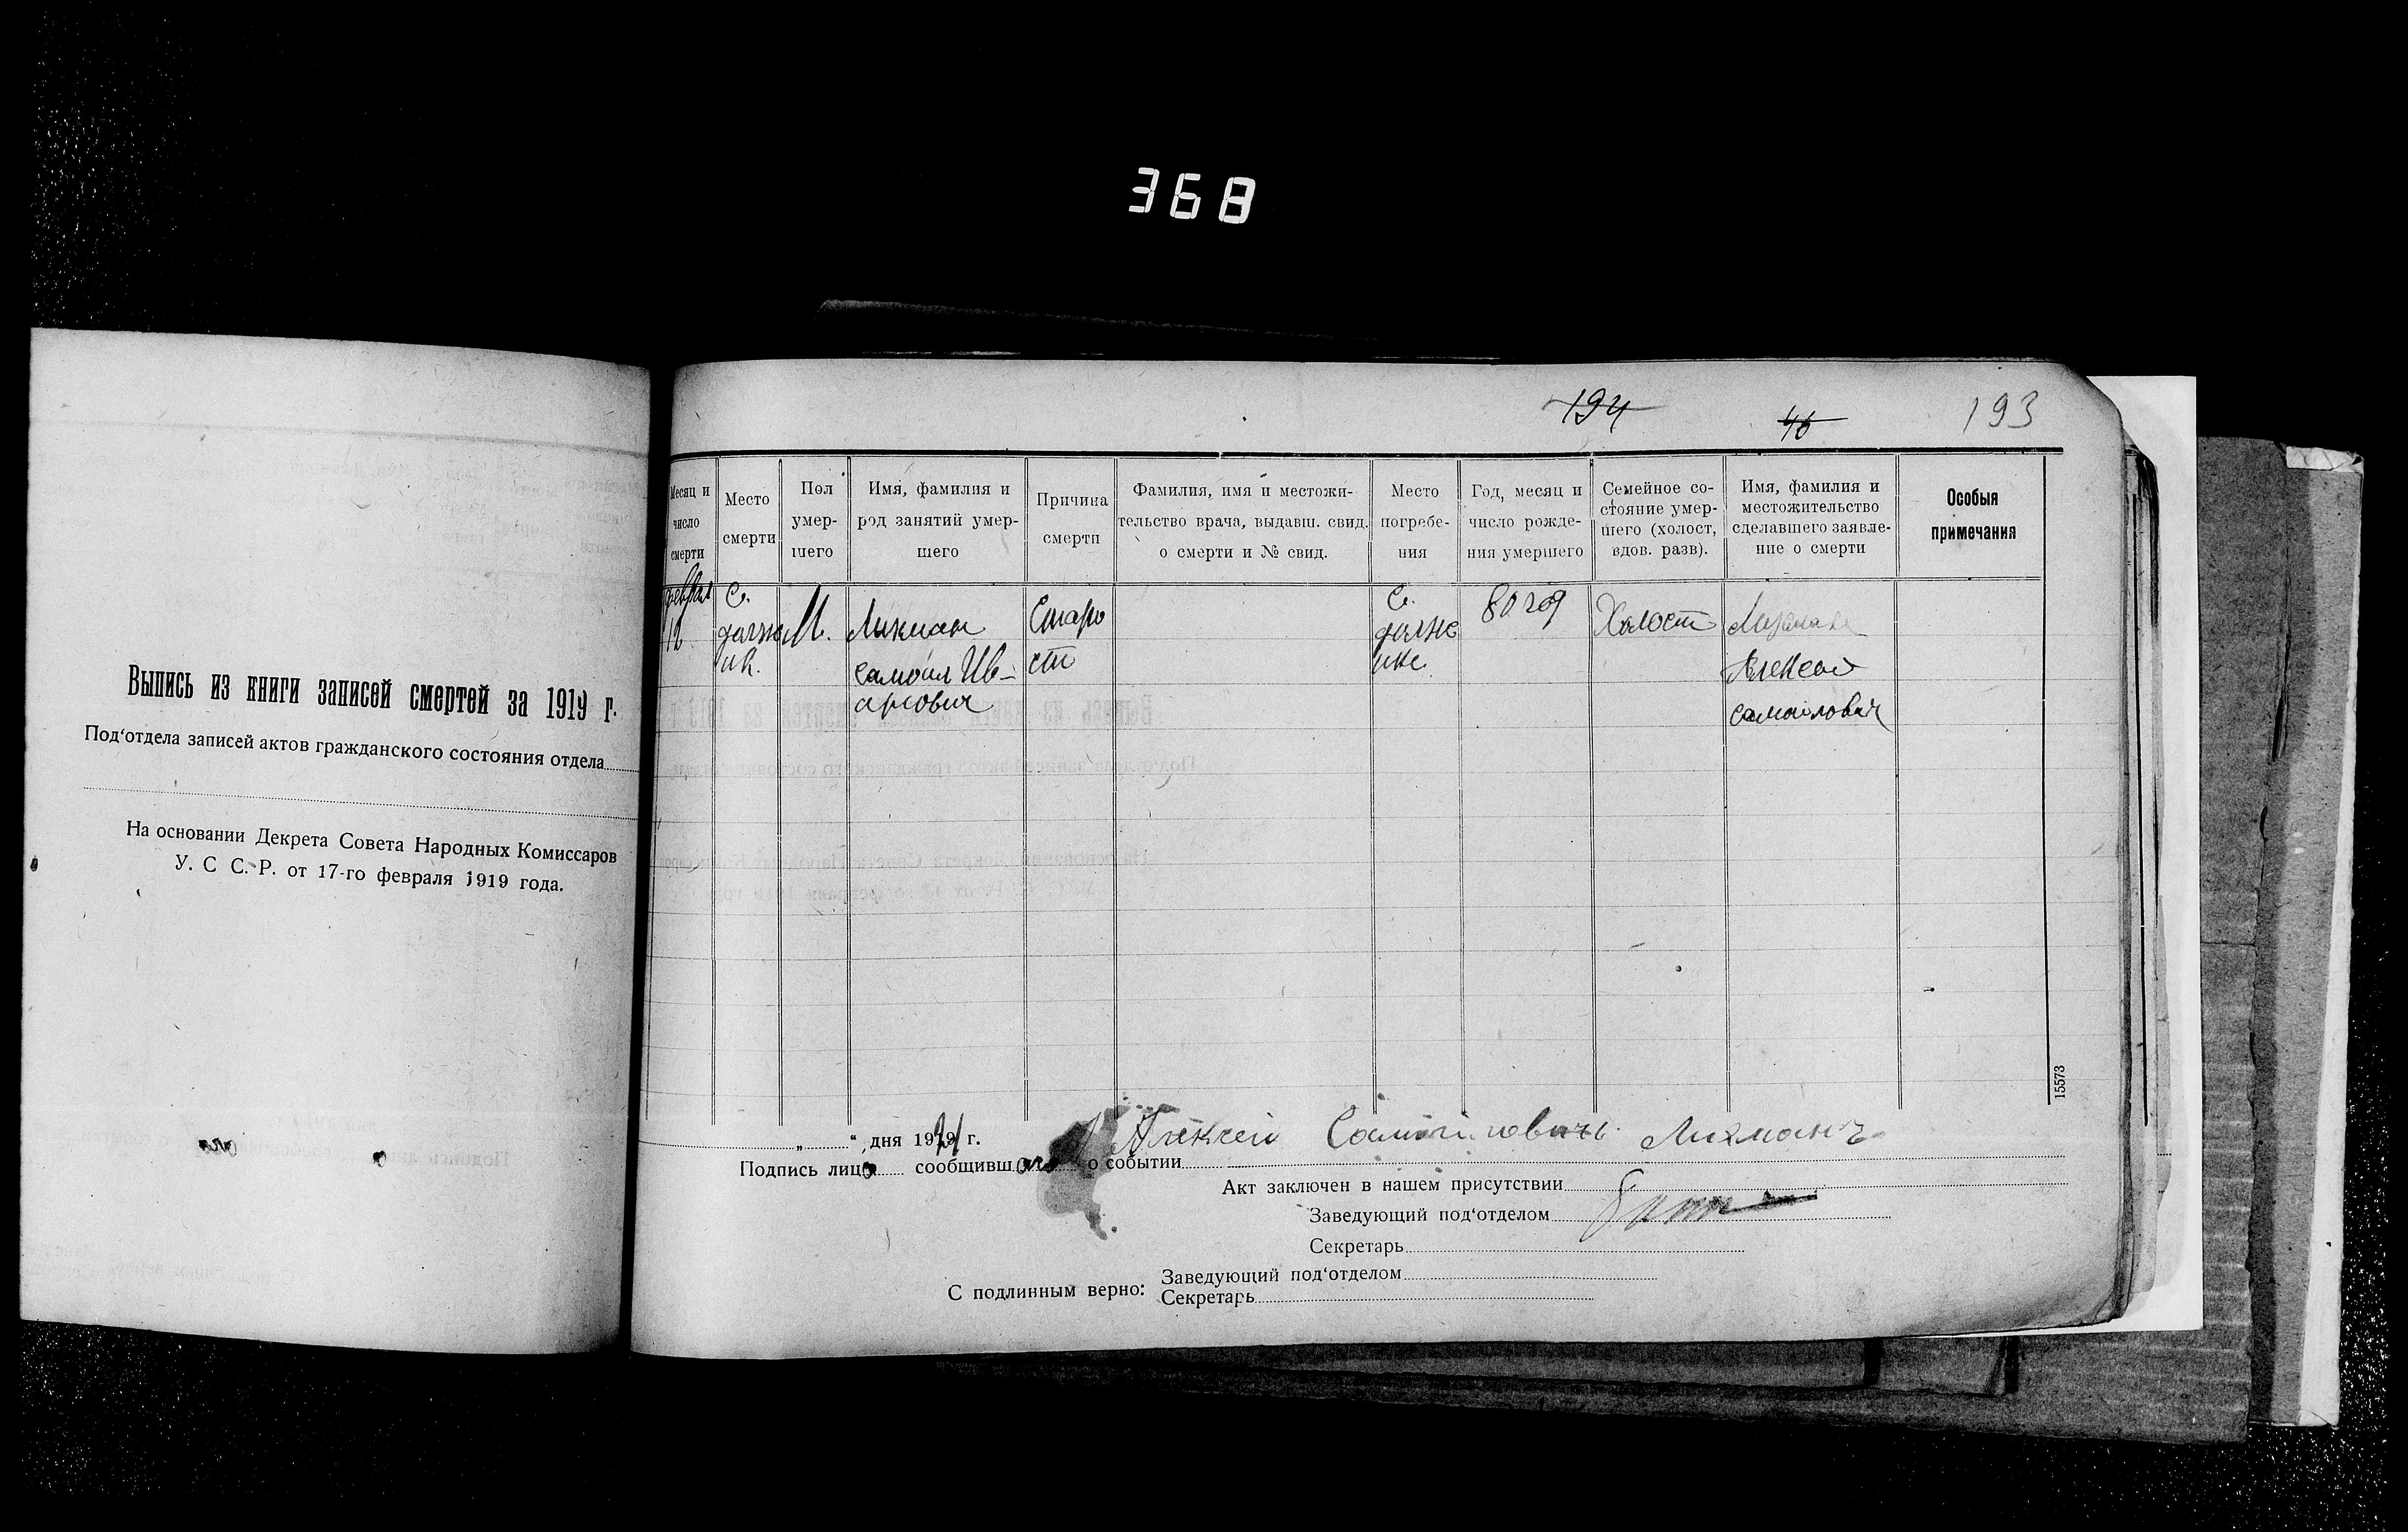 368
194
46
193
Выпись из книги записей смертей за 1919 г.
Под‘отдела записей актов гражданского состояния отдела
На основании Декрета Совета Народных Комиссаров
У. С С. Р. от 17-го февраля 1919 года.
Месяц и число смерти
Место смерти
Пол умершего
Имя, фамилия и род занятий умершего
Причина смерти
Фамилия, имя и местожительство врача, выдавш. свид. о смерти и № свид.
Место погребения
Год, месяц и число рождения умершего
Семейное состояние умершего (холост, вдов. разв).
Имя, фамилия и местожительство сделавшего заявление о смерти
Особыя примечания
12
С.
М.
Лихман
самоил Ив-
Старо
сти
С.
80 год
Холост
Алексей
самойлович
15573
„ “ дня 1921 г.
Алексей Самойловичъ Лихманъ
Подпись лица сообщивш о событии
Акт заключен в нашем присутствии
Заведующий под‘отделом
Секретарь
С подлинным верно:
Заведующий под‘отделом
Секретарь